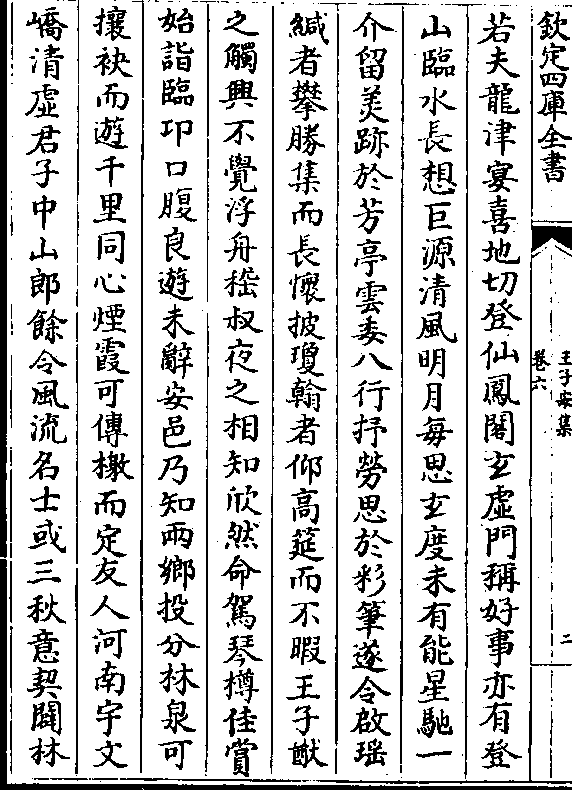 欽定四庫全書
王子安集
卷六
二
若夫龍津宴喜地切登仙鳳閣玄虛門稱好事亦有登
山臨水長想巨源清風明月每思玄度未有能星馳一
介留美跡於芳亭雲委八行抒勞思於彩筆遂令啟瑶
緘者攀勝集而長懷披瓊翰者仰高筵而不暇王子猷
之觸興不覺浮舟嵇叔夜之相知欣然命駕琴樽佳賞
始詣臨卭口腹良遊未辭安邑乃知兩鄉投分林泉可
攘袂而遊千里同心煙霞可傳檄而定友人河南宇文
嶠清虛君子中山郎餘令風流名士或三秋意契闢林